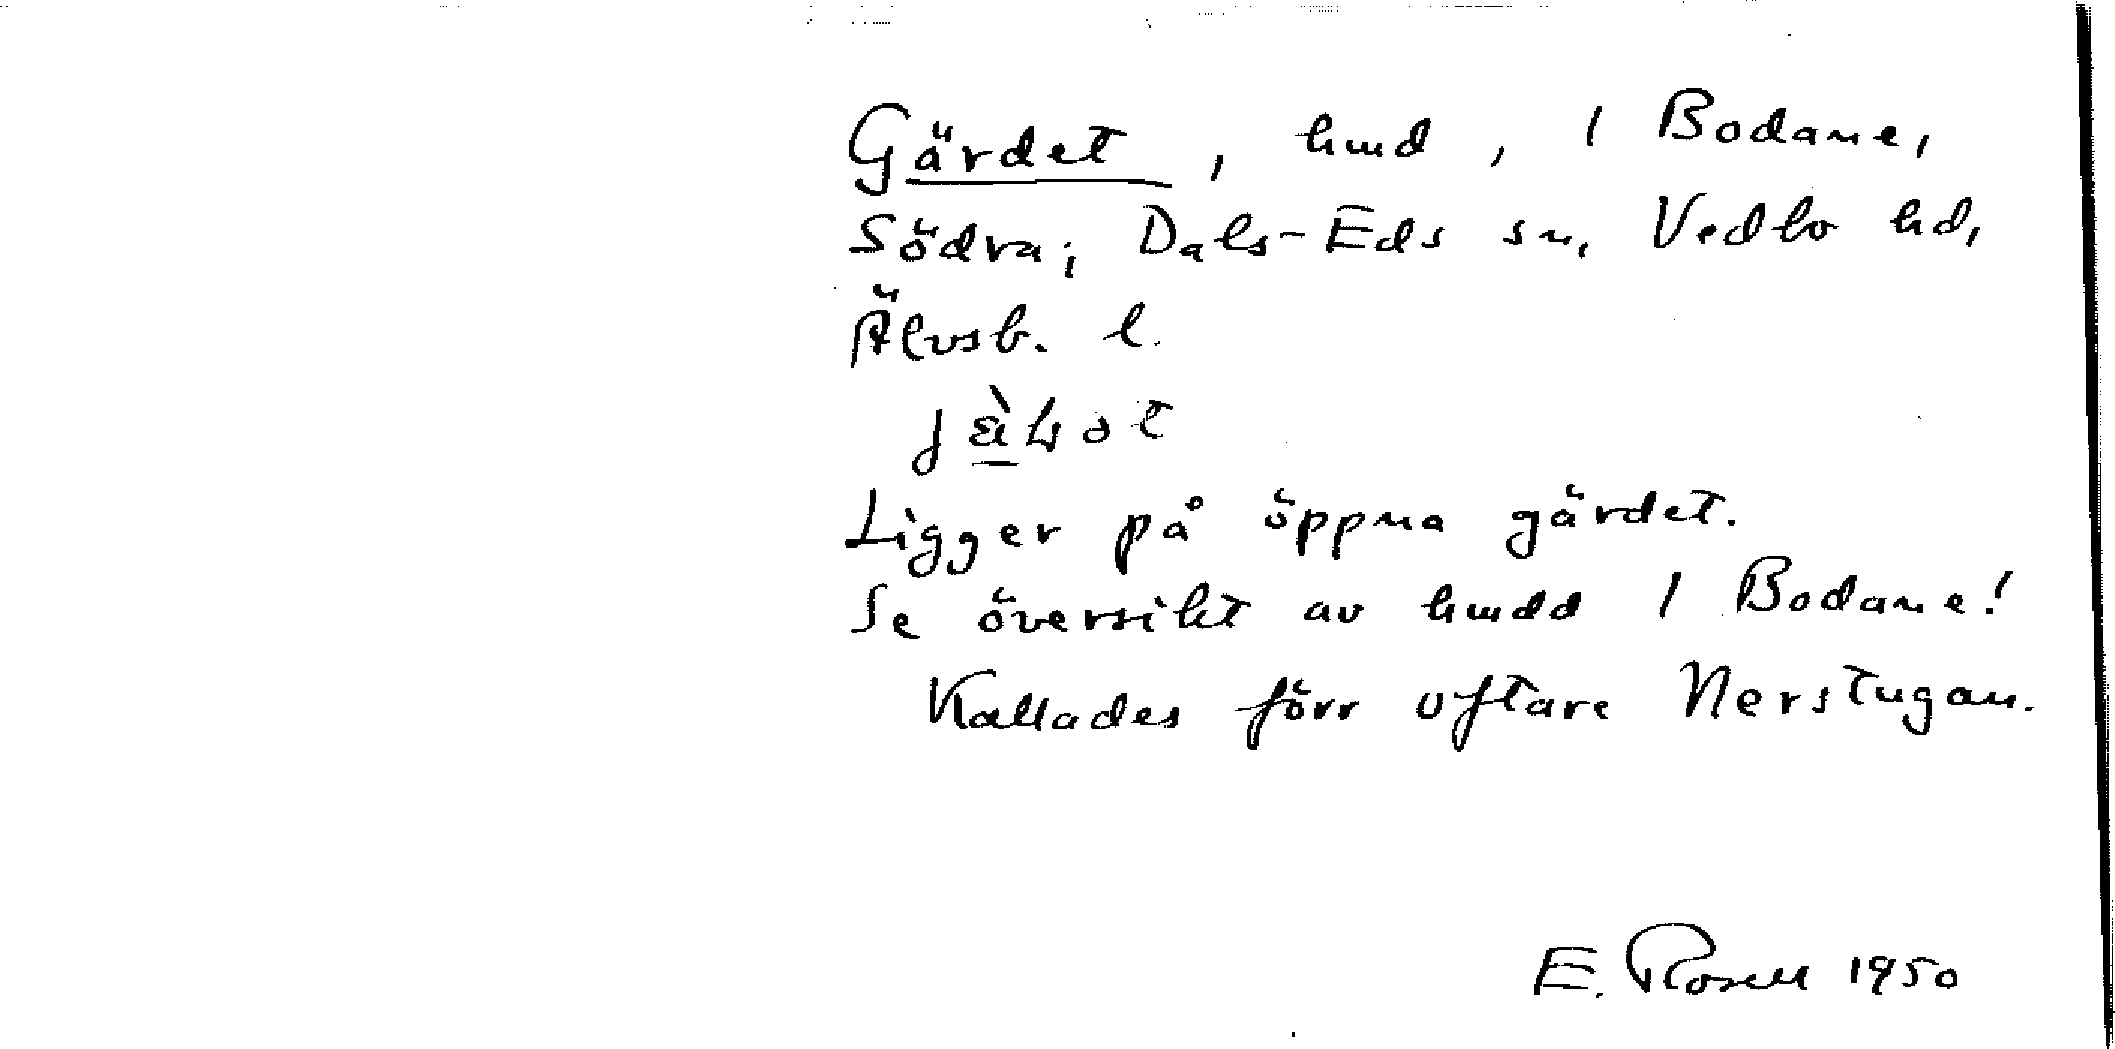 Gärdet, hmd, 1 Bodane,
Södra; Dals-Eds sn, Vedbo hd,
Älvsb. l.
Ligger på öppna gärdet.
Se översikt av hmdd 1 Bodane!
Kallades förr oftare Nerstugan.
E. Rosell 1950